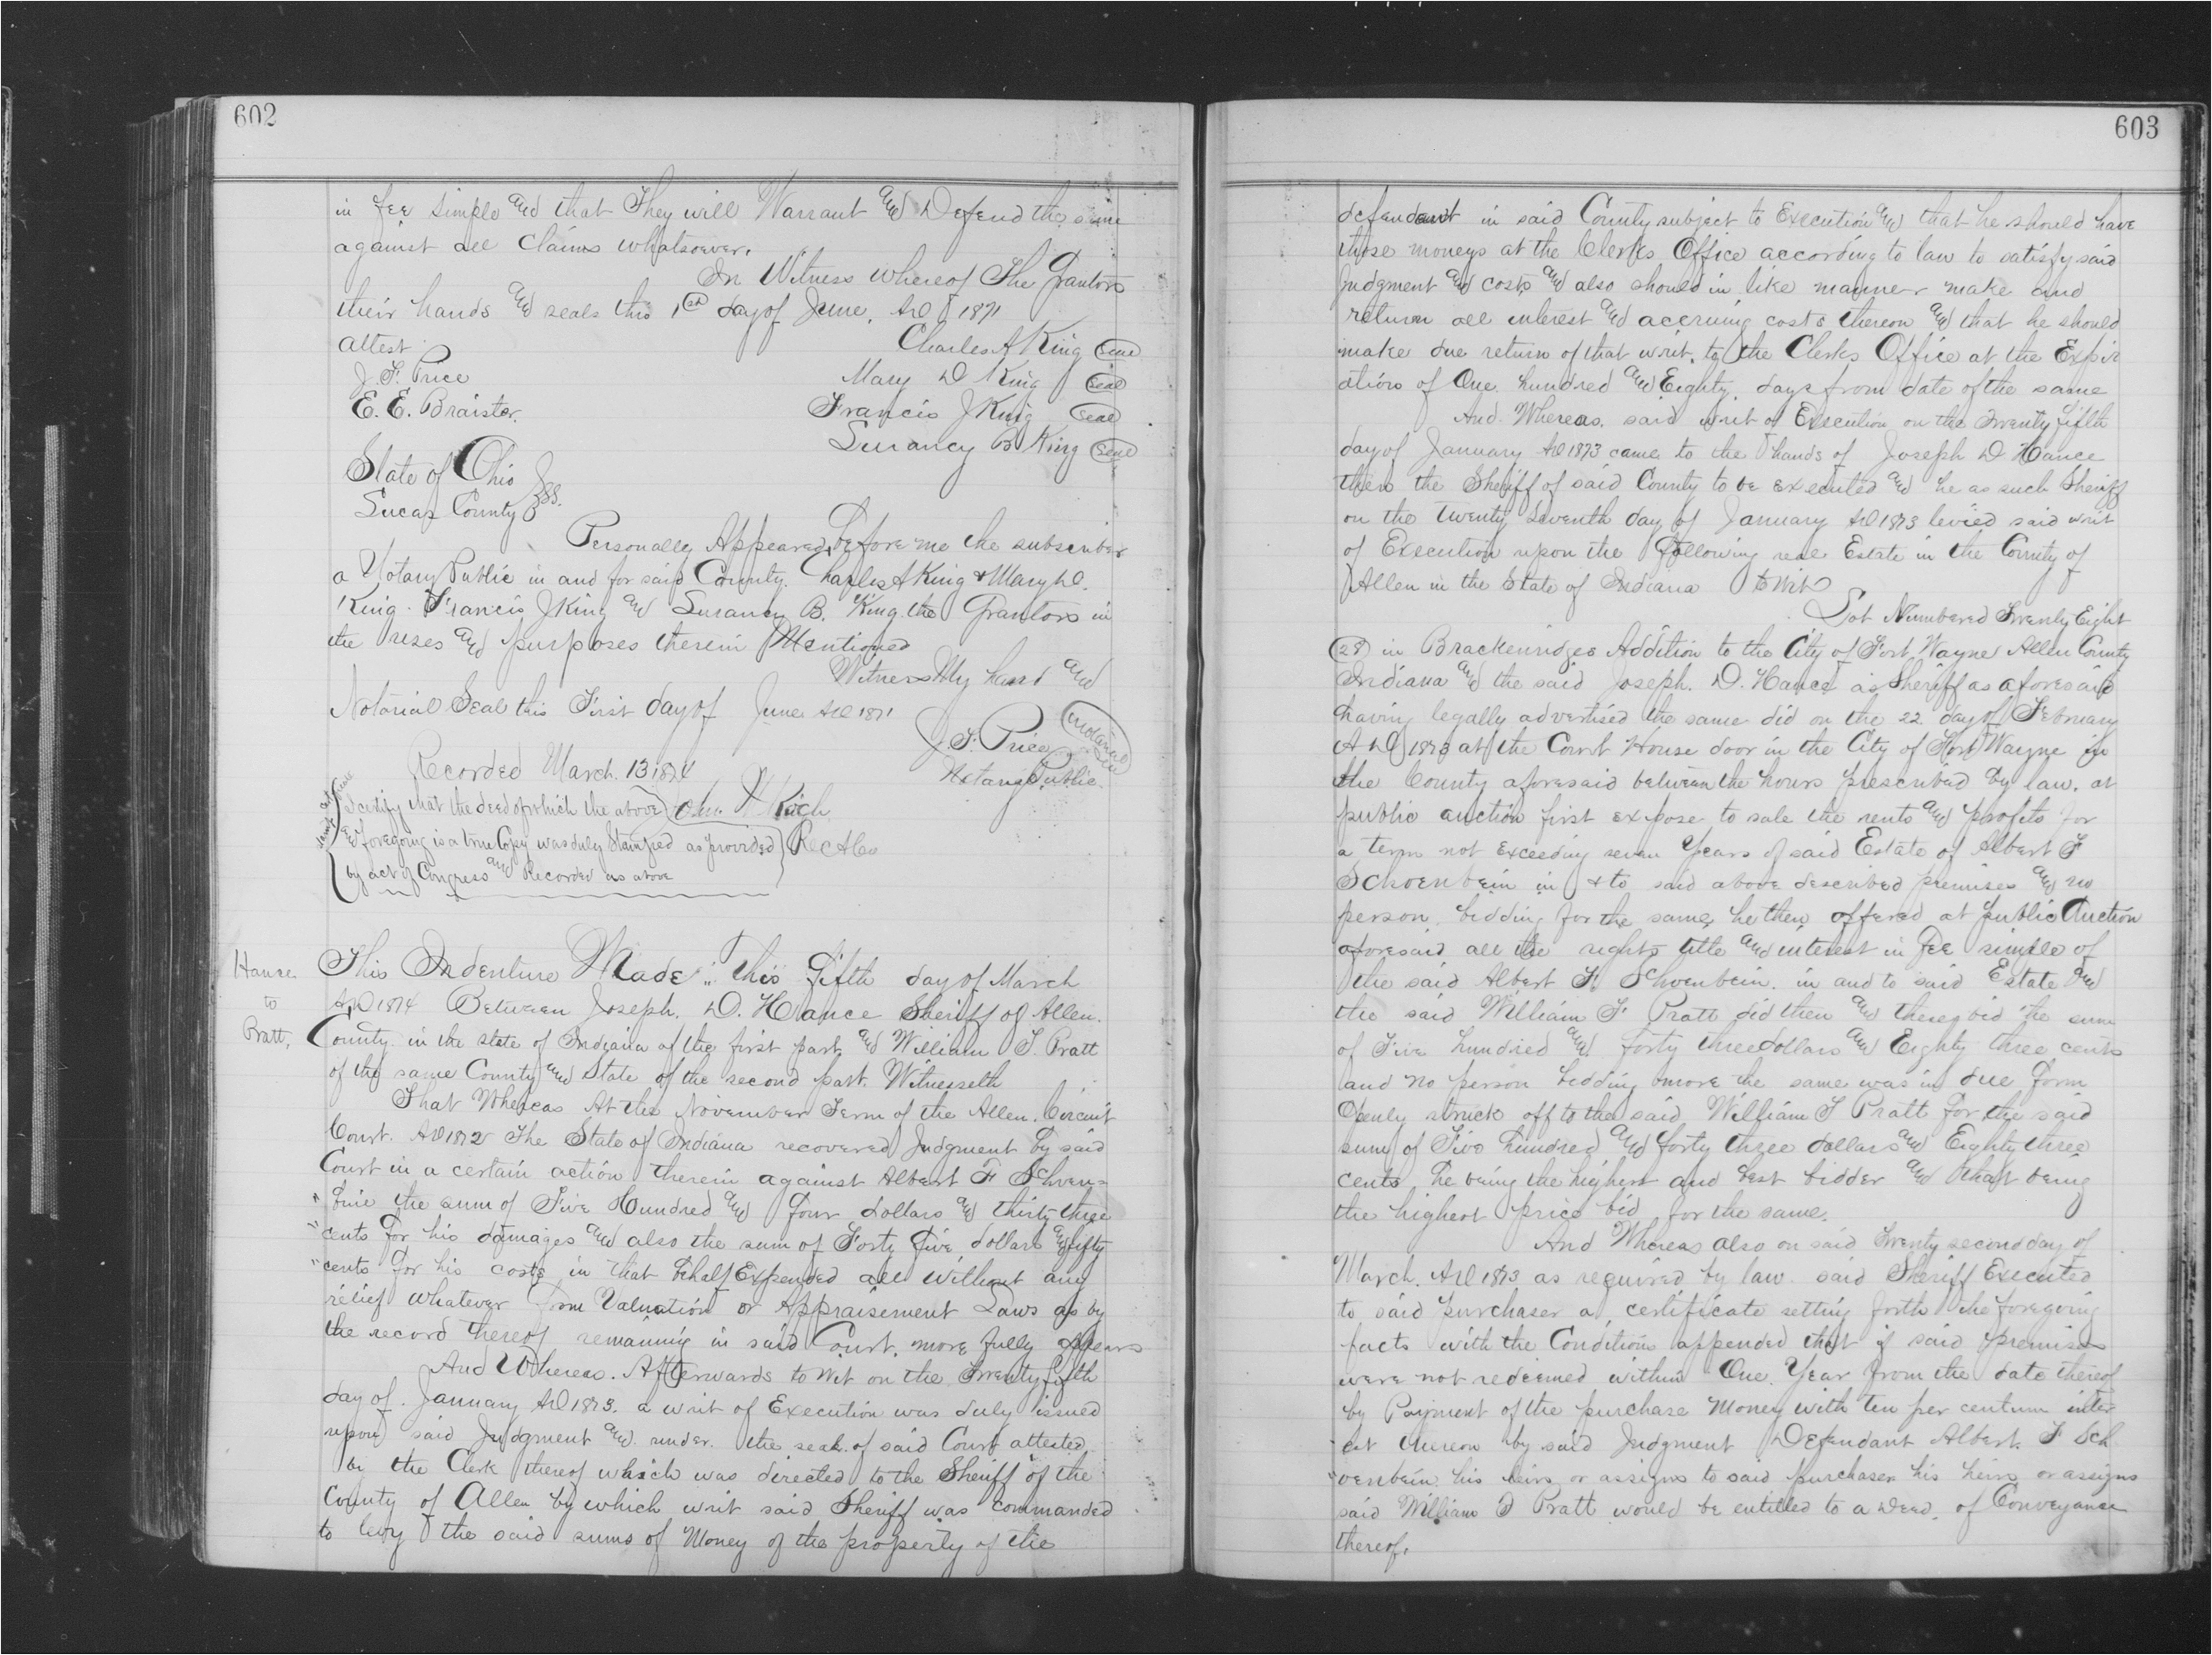 602
in fee simple and that They will Warrant and Defend the same
against all claims whatsoever.
In Witness whereof The Grantors
their hands and seals this 1st day of June, AD 1871
attest
Charles A King Seal
J. F. Price
Mary D King Seal
E. E. Braister.
Francis J King Seal
Surancy B King Seal
State of Ohio
Lucas County } SS.
Personally Appeared before me the subscriber
a Notary Public in and for said County. Charles A King & Mary D.
King. Francis J King and Surancy B. King the Grantors in
the uses and purposes therein Mentioned
Witness My hand and
Notarial Seal this First day of June AD 1871
J. F. Price
Notary Public
Notarial Seal
Recorded March. 13 1874
I certify that the deed of which the above
& foregoing is a true Copy was duly Stamped as provided
by act of Congress and Recorded as above
Jno. M Koch
Rec A Co
Hance
to
Pratt,
This Indenture Made " This Fifth day of March
AD 1874 Between Joseph. D. Hance Sheriff of Allen.
County in the state of Indiana of the first part and William S. Pratt
of the same County and State of the second part. Witnesseth
That Whereas At the November Term of the Allen. Circuit
Court. AD 1872 The State of Indiana recovered Judgment by said
Court in a certain action therein against Albert F Schven=
" bine the sum of Five Hundred and four dollars and thirty three
" cents for his damages and also the sum of Forty five dollars and fifty
" cents for his costs in that behalf Expended all without any
relief whatever from Valuation or Appraisement Laws as by
the record thereof remaining in said Court. more fully appears
And Whereas. Afterwards to wit on the Twenty fifth
day of. January AD 1873. a writ of Execution was duly issued
upon said Judgment and under. the seal. of said Court attested
by the Clerk thereof which was directed to the Sheriff of the
County of Allen by which writ said Sheriff was commanded
to levy the said sums of Money of the property of the
603
defendant in said County subject to Execution and that he should have
those moneys at the Clerks Office according to law to satisfy said
judgment and costs and also should in like manner make and
return all interest and accruing costs thereon and that he should
make due return of that writ. to the Clerks Office at the Expir
ation of One hundred and Eighty. days from date of the same
And. Whereas. said writ of Execution on the Twenty fifth
day of January AD 1873 came to the hands of Joseph D Hance
then the Sheriff of said County to be executed and he as such Sheriff
on the twenty Seventh day of January AD 1873 levied said writ
of Execution upon the following real Estate in the County of
Allen in the State of Indiana to Wit
Lot Numbered Twenty Eight
(28) in Brackenridges Addition to the City of Fort Wayne Allen County
Indiana and the said Joseph. D. Hance as Sheriff as aforesaid
having legally advertised the same did on the 22 day of February
A D 1873 at the Court House door in the City of Fort Wayne in
the County aforesaid between the hours prescribed by law. at
public auction first expose to sale the rents and profits for
a term not exceeding seven Years of said Estate of Albert F
Schoenbein in & to said above described premises and no
person. bidding for the same he then offered at public Auction
aforesaid all the rights title and interest in fee simple of
the said Albert F. Schvenbein. in and to said Estate and
the said William S Pratt did then and there bid the sum
of Five hundred and forty three dollars and Eighty three cents
and no person bidding more the same was in due form
Openly struck off to the said William S Pratt for the said
sum of Five hundred and forty three dollars and Eighty three
cents he being the highest and best bidder and that being
the highest price bid for the same.
And Whereas also on said Twenty second day of
March. AD 1873 as required by law. said Sheriff Executed
to said purchaser a certificate setting forth the foregoing
facts with the Conditions appended that if said premises
were not redeemed within One. Year from the date thereof
by Payment of the purchase Money with ten per centum inter
est thereon by said Judgment Defendant Albert F Sch
" venbein his heirs or assigns to said purchaser his heirs or assigns
said William S Pratt would be entitled to a Deed. of Conveyance
thereof.